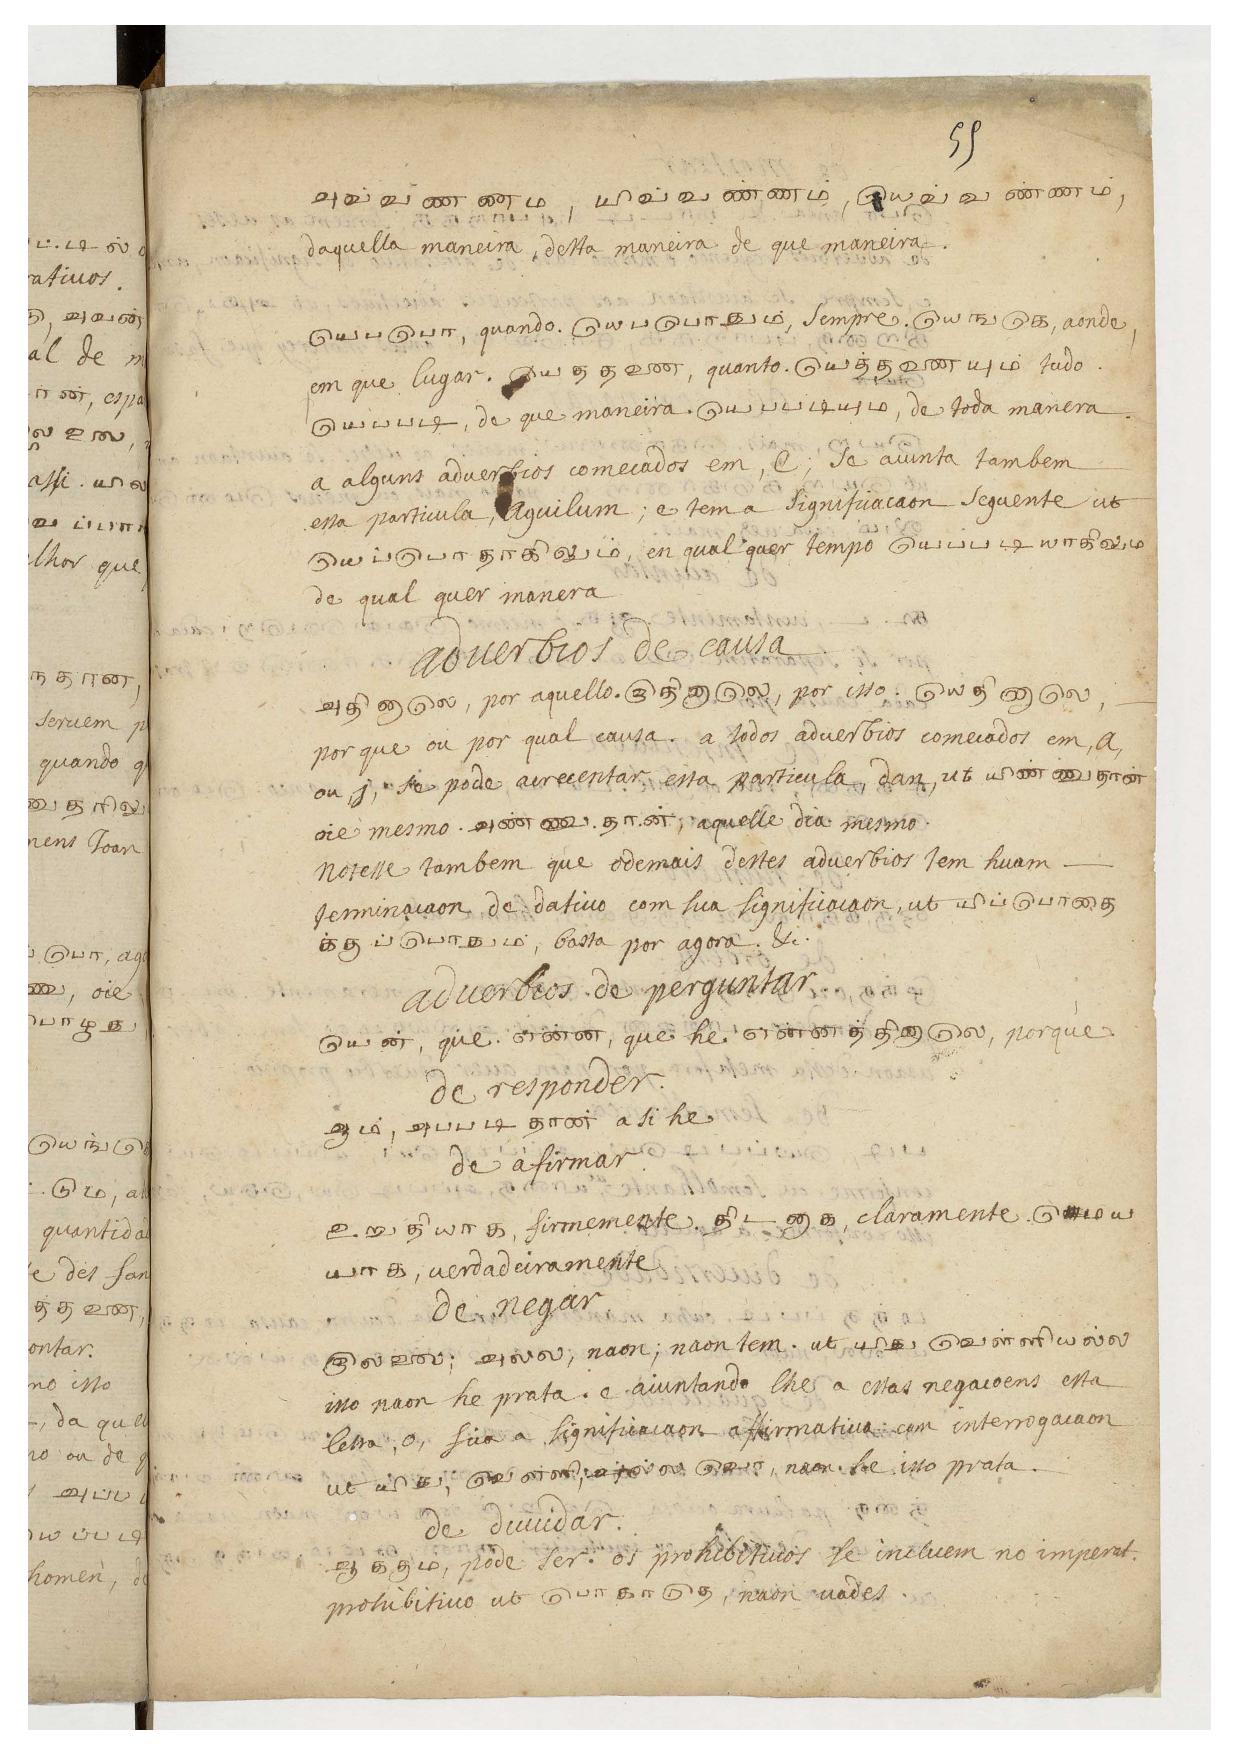 55
அவ்வணணம, யிவ்வண்ணம், யெவ்வண்ணம்,
daquella maneira, desta maneira de que maneira.
யெபபொ, quando. யெபபொதும், sempre. யெஙகெ, aonde,
em que lugar. யெததனை, quanto. யெத்தனையும் tudo.
யெபபடி, de que maneira. யெபபடியும, de toda manera.
a alguns aduerbios comecados em, e, se aiunta tambem
esta particula, aguilum; e tem a significacaon seguente ut
யெப்பொதாகிலும், en qual quer tempo யெப்படியாகிலும
de qual quer manera
aduerbios de causa
அதினாலெ, por aquello. இதினாலெ, por isso. யெதினாலெ,
por que ou por qual causa. a todos aduerbios comecados em, a,
ou, j, se pode acrecentar esta particula, dan, ut யிண்ணைதான்
oie mesmo. அண்ணை.தான், aquelle dia mesmo.
Notesse tambem que odemais destes aduerbios tem huam
terminacaon de datiuo com sua significacaon, ut யிப்பொதை
க்குப்பொதும், basta por agora. &c.
aduerbios de perguntar
யென், que. என்ன, que he. என்னத்தினாலெ, porque.
de responder.
ஆம், அபபடிதான் a si he
de afirmar
உறுதியாக, firmemente. திடனாக, claramente. மெய
யாக, uerdadeiramente
de negar
இலலை; அலல, naon; naon tem. ut யிது வெள்ளியல்ல
isso naon he prata. e aiuntando lhe a estas negacoens esta
letra, o, fica a significacaon affirmatiua com interrogacaon
ut யிது, வெள்ளி, naon he isso prata.
de duuidar.
ஆககும, pode ser. os prohibitiuos se incluem no imperat.
prohibitiuo ut பொகாதெ, naon uades.